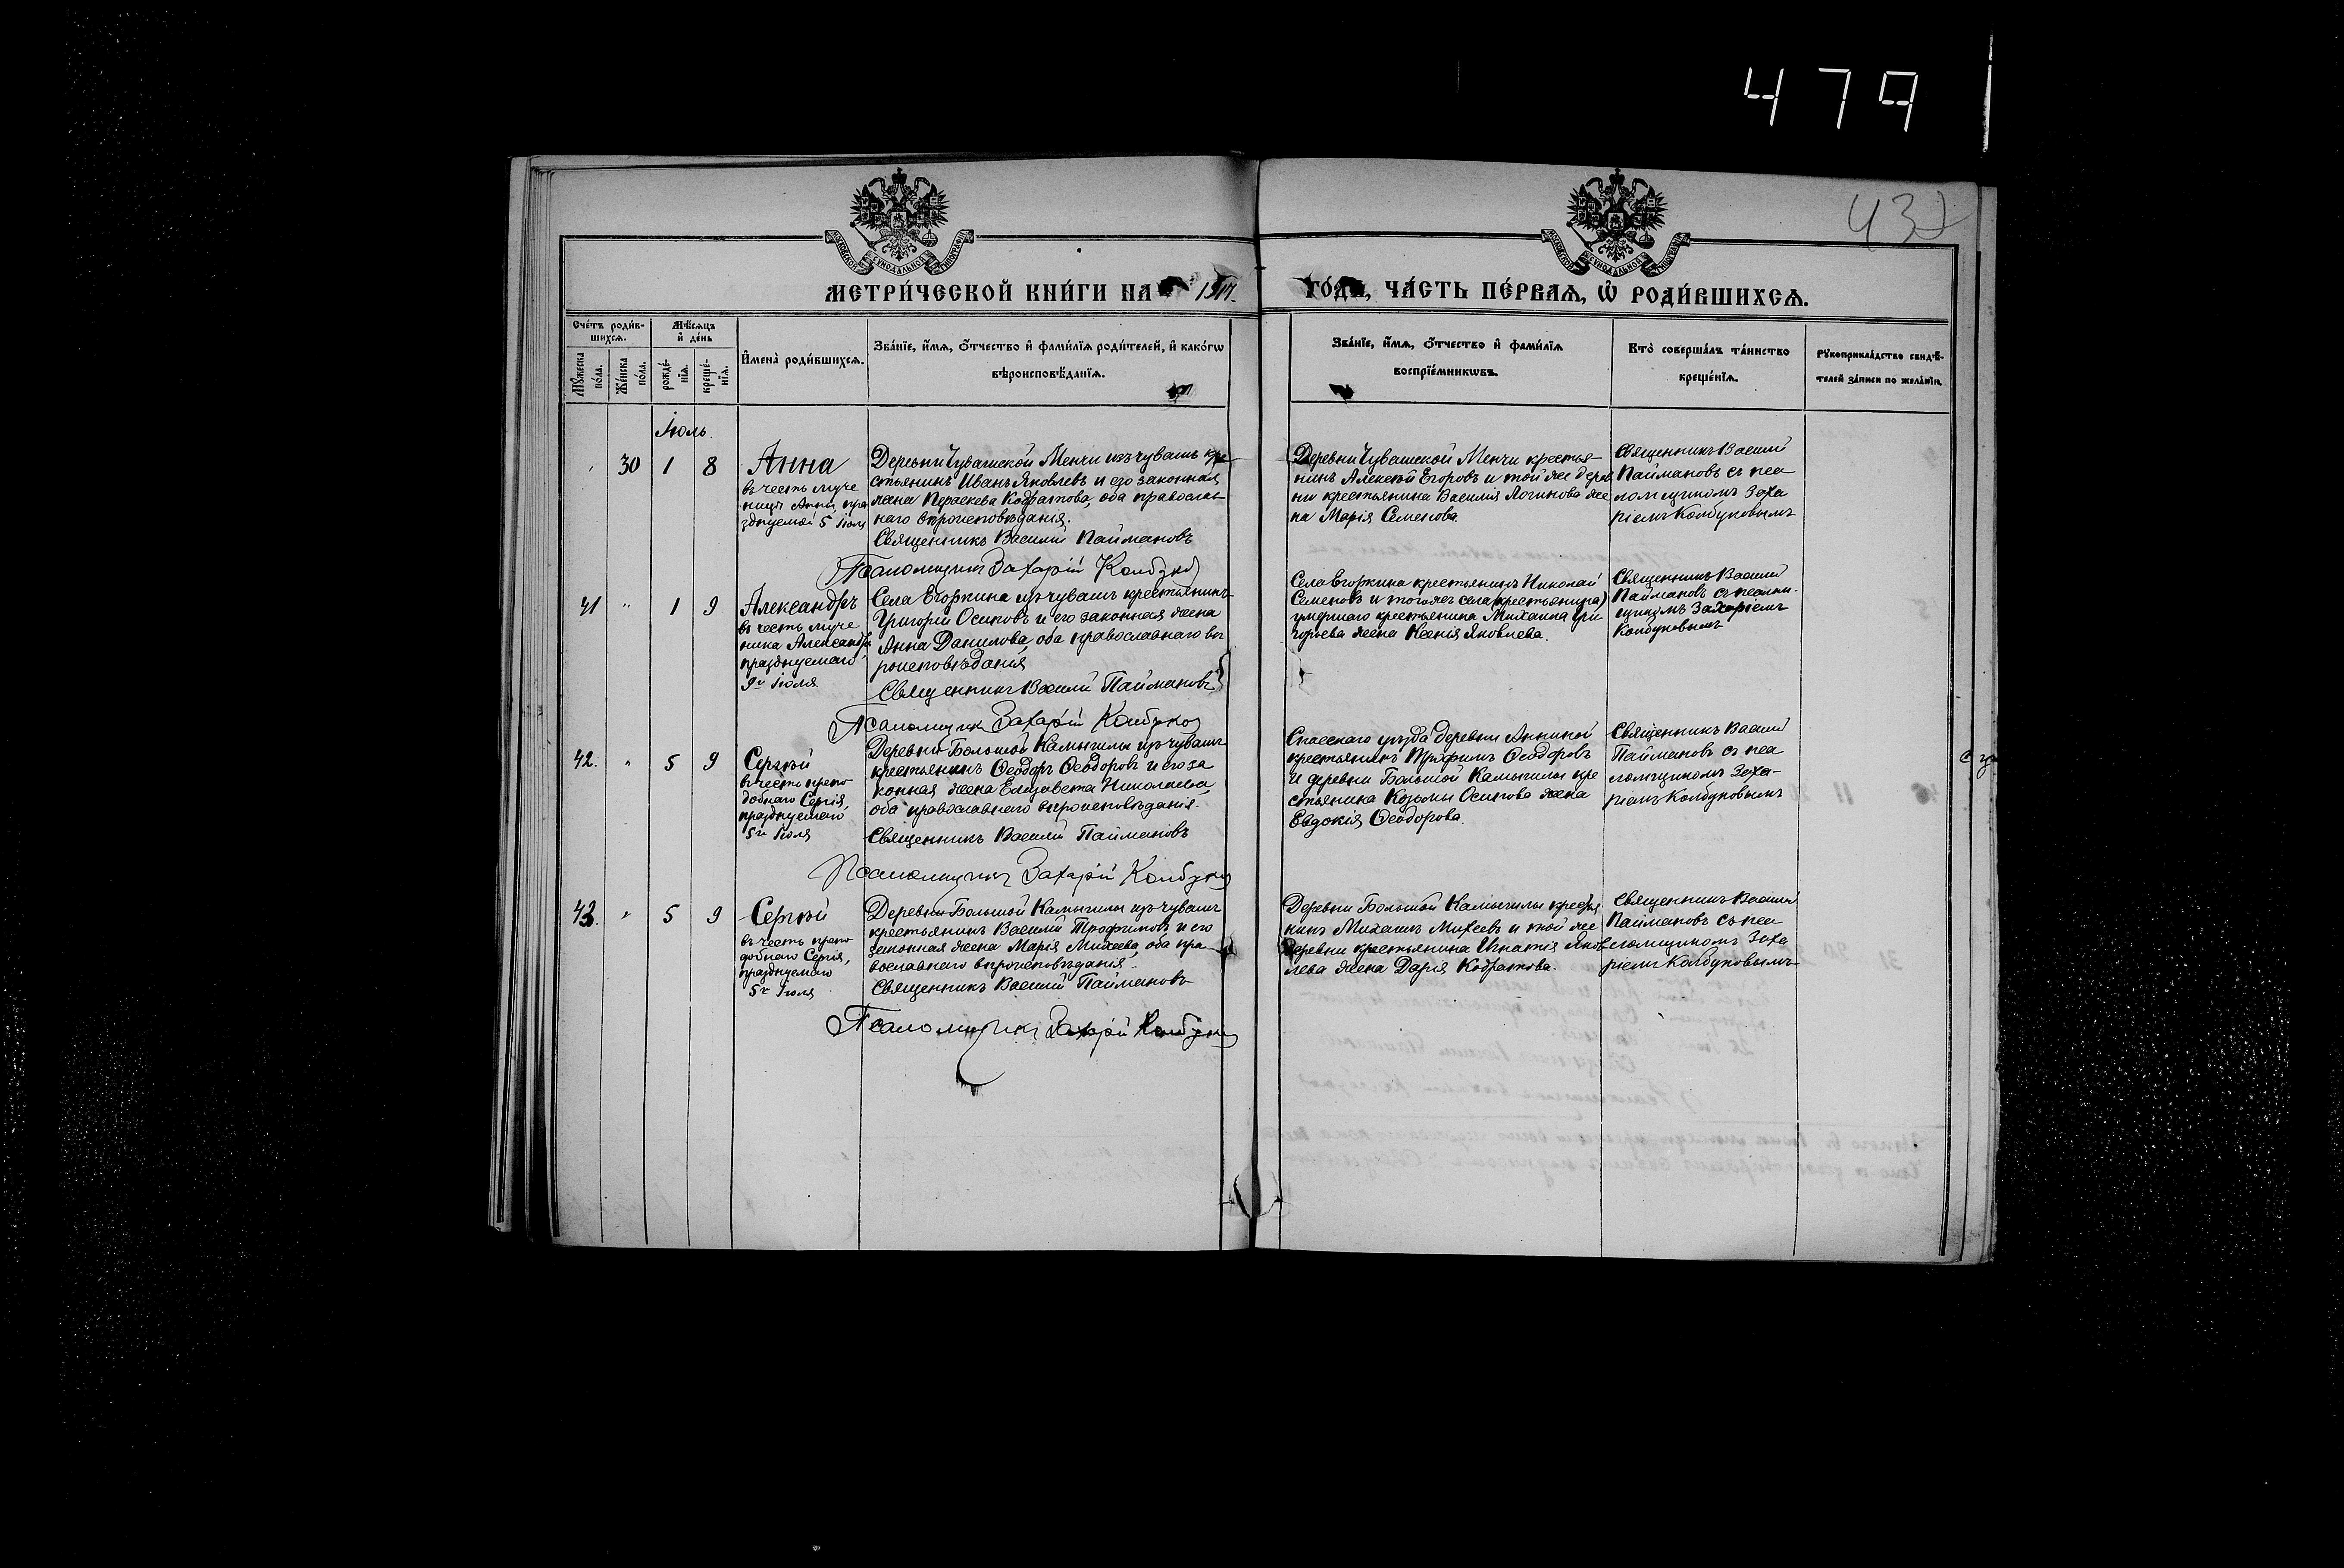 479
437
МОСКОВСКОЙ СѴНОДАЛЬНОЙ ТИПОГРАФІИ
МОСКОВСКОЙ СѴНОДАЛЬНОЙ ТИПОГРАФІИ
МЕТРИ́ЧЕСКОЙ КНИ́ГИ НА 1917 ГО́ДЪ, ЧА́СТЬ ПЕ́РВАѦ, Ѡ҆ РОДИ́ВШИХСѦ.
Сче́тъ роди́в-
шихсѧ.
Мѣ́сѧцъ
и҆ де́нь
Мꙋ́жеска
по́ла.
Же́нска
по́ла.
рожде́-
нїѧ.
креще́-
нїѧ.
И҆мена̀ роди́вшихсѧ.
Зва́нїе, и҆́мѧ, ѻ҆́тчество и҆ фами́лїѧ роди́телей, и҆ како́гѡ
вѣроисповѣ́данїѧ.
Зва́нїе, и҆́мѧ, ѻ҆́тчество и҆ фами́лїѧ
воспрїе́мникѡвъ.
Кто̀ соверша́лъ та́инство
креще́нїѧ.
Рꙋкоприкла́дство свидѣ́-
телей за́писи по жела́нїю.
Іюль.
30 1 8
Анна
въ честь муче
ницы Анны, пра
зднуемой 5 Іюля
Деревни Чувашской Менчи изъ чувашъ кре
стьянинъ Иванъ Яковлевъ и его законная
жена Параскева Кодратова, оба православ-
наго вѣроисповѣданія.
Священникъ Василій Паймановъ
Псаломщикъ Захарій Колбуко
Деревни Чувашской Менчи крестья-
нинъ Алексѣй Егоровъ и той же дерев
ни крестьянина Василія Логинова же
на Марія Семенова.
Священникъ Василій
Паймановъ съ пса
ломщикомъ Заха
ріемъ Колбуковымъ
41 " 1 9
Александръ
въ честь муче
ника Александра
празднуемаго
9го Іюля.
Села Егоркина изъ чувашъ крестьянинъ
Григорій Осиповъ и его законная жена
Анна Данилова, оба православнаго вѣ
роисповѣданія
Священникъ Василій Паймановъ
Псаломщикъ Захарій Колбуко
Села Егоркина крестьянинъ Николай
Семеновъ и того же села (крестьянина)
умершаго крестьянина Михаила Гри
горьева жена Ксенія Яковлева.
Священникъ Василій
Паймановъ съ псалом-
щикомъ Захаріемъ
Колбуковымъ
42. " 5 9
Сергѣй
въ честь препо
добнаго Сергія,
празднуемаго
5го Іюля
Деревни Большой Камычилы изъ чувашъ
крестьянинъ Ѳеодоръ Ѳеодоровъ и его за
конная жена Елизавета Николаева,
оба православнаго вѣроисповѣданія.
Священникъ Василій Паймановъ
Псаломщикъ Захарій Колбуко
Спасскаго уѣзда деревни Аниной
крестьянинъ Трофимъ Ѳеодоровъ
и деревни Большой Камычилы кре
стьянина Козьмы Осипова жена
Евдокія Ѳеодорова.
Священникъ Василій
Паймановъ съ пса
ломщикомъ Заха-
ріемъ Колбуковымъ
43. " 5 9
Сергѣй
въ честь препо
добнаго Сергія,
празднуемаго
5го Іюля
Деревни Большой Камычилы изъ чувашъ
крестьянинъ Василій Трофимовъ и его
законная жена Марія Михеева, оба пра-
вославнаго вѣроисповѣданія.
Священникъ Василій Паймановъ
Псаломщикъ Захарій Колбуко
Деревни Большой Камычилы крестья
нинъ Михаилъ Михеевъ и той же
деревни крестьянина Игнатія Яков
лева жена Дарія Кодратова.
Священникъ Василій
Паймановъ съ пса
ломщикомъ Заха
ріемъ Колбуковымъ